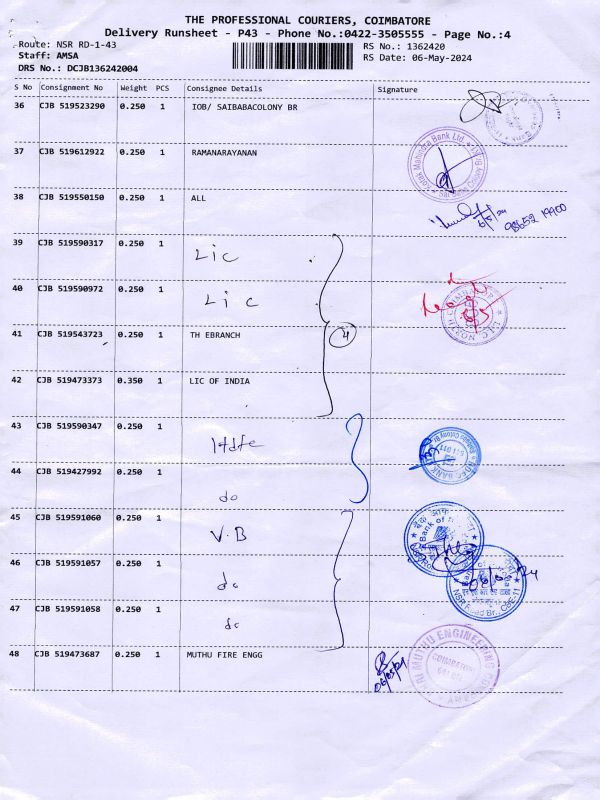 THE PROFESSIONAL COURIERS, COIMBATORE
Delivery Runsheet - P43 - Phone No.:0422-3505555 - Page No.:4
Route: NSR RD-1-43
RS No.: 1362420
Staff: AMSA
RS Date: 06-May-2024
DRS No.: DCJB136242004
S No Consignment No Weight PCS Consignee Details Signature
36 CJB 519523290 0.250 1 IOB/ SAIBABACOLONY BR
37 CJB 519612922 0.250 1 RAMANARAYANAN
Kotak Mahindra Bank Ltd.
38 CJB 519550150 0.250 1 ALL
98652 19900
39 CJB 519590317 0.250 1 LIC
40 CJB 519590972 0.250 1 LIC
41 CJB 519543723 0.250 1 TH EBRANCH
4
42 CJB 519473373 0.350 1 LIC OF INDIA
43 CJB 519590347 0.250 1 Hdfc
44 CJB 519427992 0.250 1 do
45 CJB 519591060 0.250 1 V.B
46 CJB 519591057 0.250 1 do
47 CJB 519591058 0.250 1 do
48 CJB 519473687 0.250 1 MUTHU FIRE ENGG
MUTHU ENGINEERING
COIMBATORE